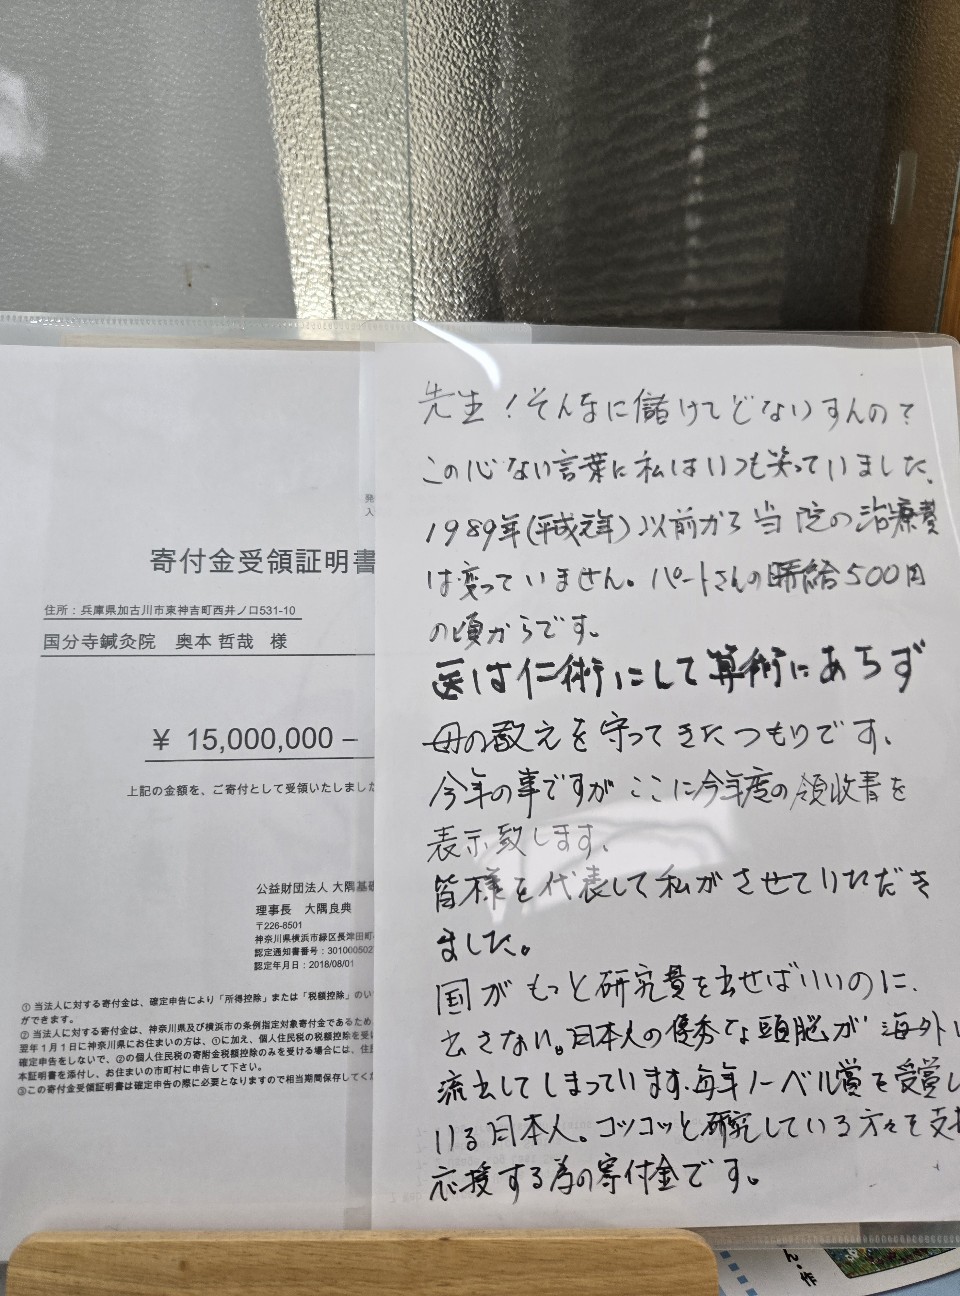 寄付金受領証明書
住所：兵庫県加古川市東神吉町西井ノ口531-10
国分寺鍼灸院 奥本 哲哉 様
¥ 15,000,000 –
上記の金額を、ご寄付として受領いたしました
公益財団法人 大隅基礎
理事長 大隅良典
〒226-8501
神奈川県横浜市緑区長津田町
認定通知書番号：301000502
認定年月日：2018/08/01
① 当法人に対する寄付金は、確定申告により「所得控除」または「税額控除」のい
ができます。
② 当法人に対する寄付金は、神奈川県及び横浜市の条例指定対象寄付金であるため
翌年1月1日に神奈川県にお住まいの方は、①に加え、個人住民税の税額控除を受け
確定申告をしないで、②の個人住民税の寄附金税額控除のみを受ける場合には、住民
本証明書を添付し、お住まいの市町村に申告して下さい。
③この寄付金受領証明書は確定申告の際に必要となりますので相当期間保存してくだ
先生！そんなに儲けてどないすんの？
この心ない言葉に私はいつも笑っていました、
1989年(平成元年)以前から当院の治療費
は変っていません。パートさんの時給500円
の頃からです。
医は仁術にして算術にあらず
母の教えを守ってきたつもりです、
今年の事ですがここに今年度の領収書を
表示致します、
皆様を代表して私がさせていただき
ました。
国がもっと研究費を出せばいいのに、
出さない。日本人の優秀な頭脳が海外に
流出してしまっています、毎年ノーベル賞を受賞し
いる日本人。コツコツと研究している方々を支援
応援する為の寄付金です。
ん・作